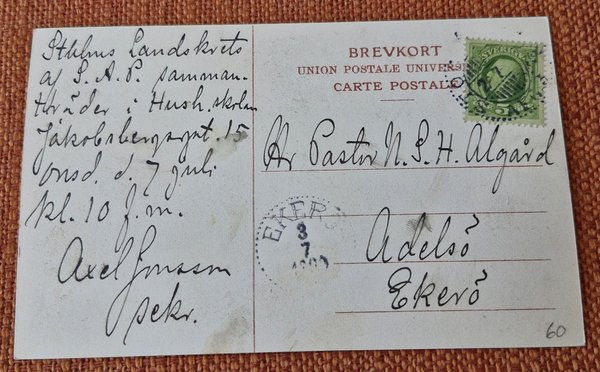 Sthlms Landskrets
af S.A.P. samman-
träder i Hush.skolan
Jakobsbergsgat. 15
onsd. d. 7 juli
kl. 10 f.m.
Axel Jonsson
sekr.
BREVKORT
UNION POSTALE UNIVERS
CARTE POSTALE
SVERIGE
Hr Pastor N.S.H. Algård
Adelsö
Ekerö
EKERÖ
3
7
60